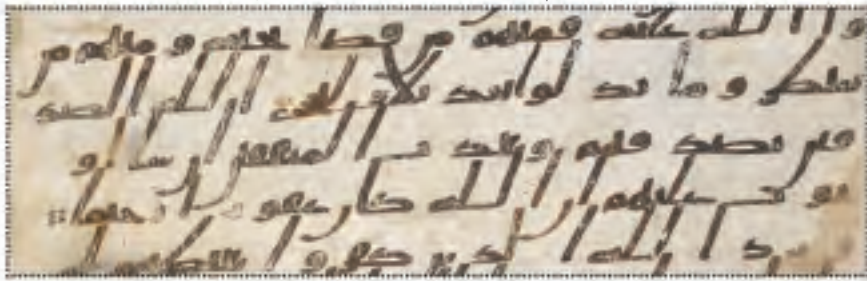 وا الله عليه فمنهم من قضا نحبه و منهم من
ينتظر و ما بد لوا تبديلا ليجزي الله الصد
قين بصدقهم و يعذب المنفقين ان شا ا و
يتوب عليهم ان الله كان غفورا رحيما
ورد الله الذين كفروا بغيظهم